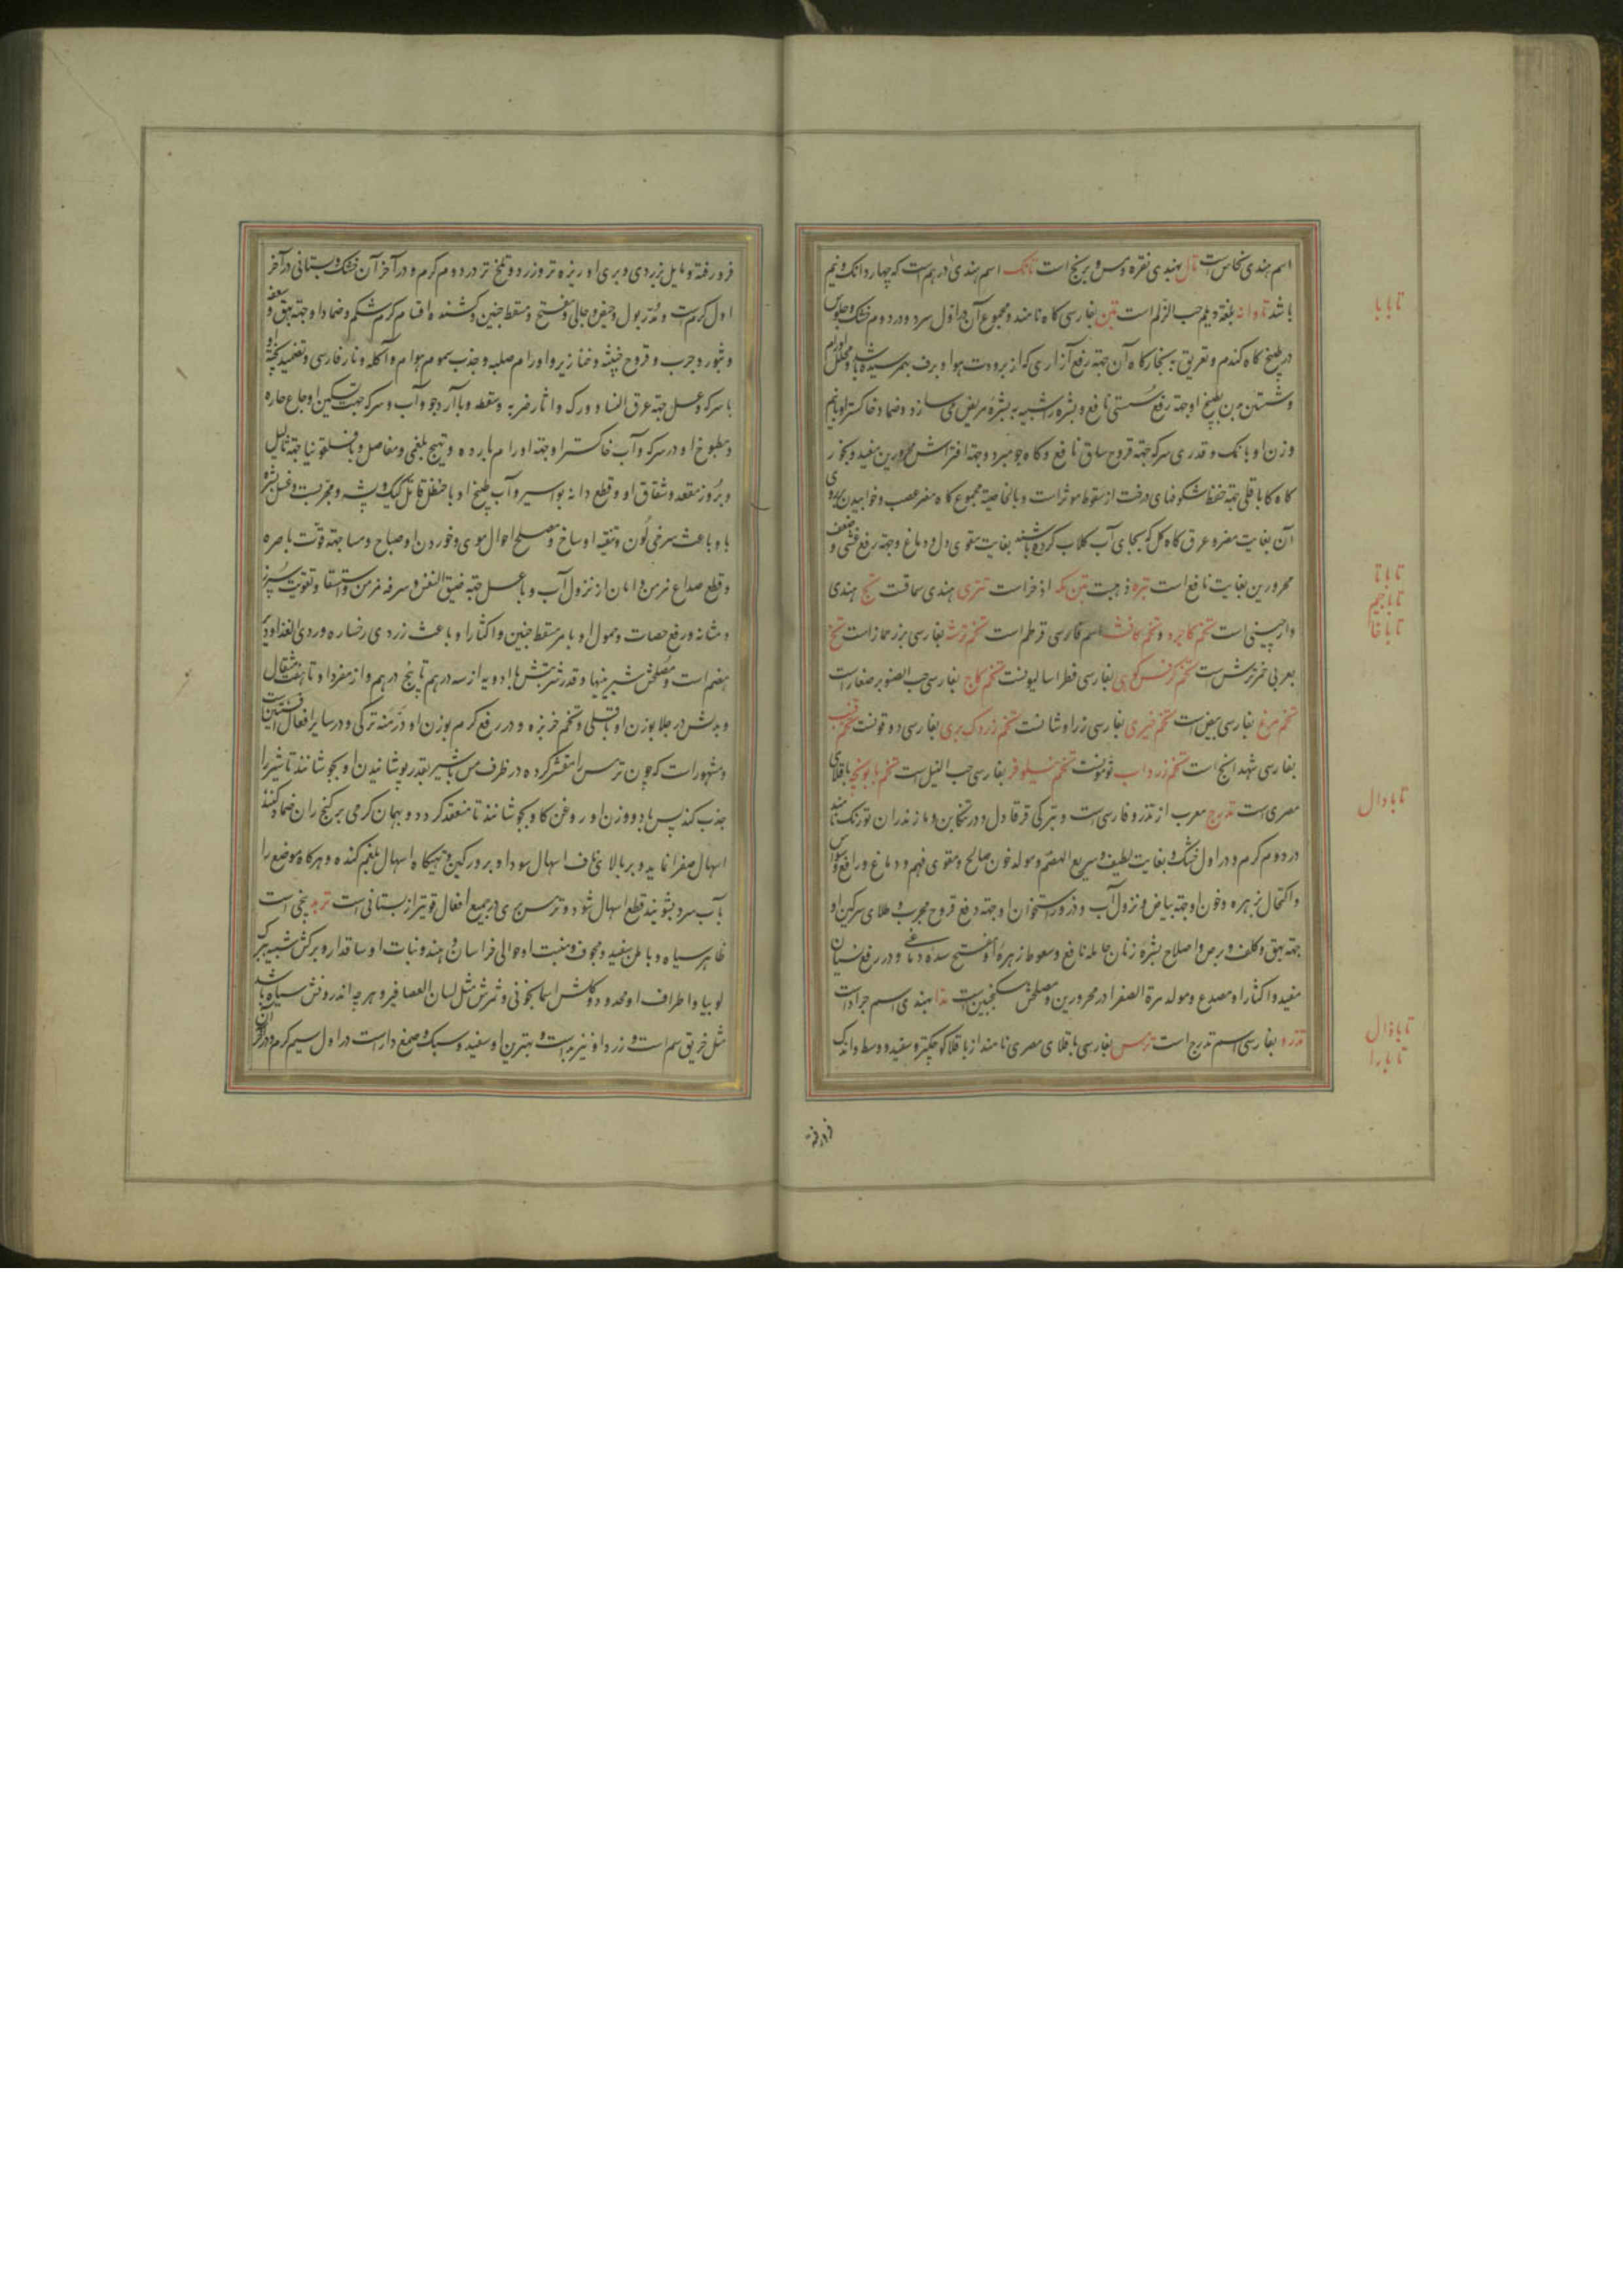 اسم هندی نحاس است تال بهندی نقره و مس و برنج است تانک اسم هندی درهم است که چهار دانک و نیم
باشد تاوانه بلغة دیلم حب الزلم است تبن بفارسی کاه نامند و مجموع آن در اول سرد و در دوم خشک و جلوس
در طبیخ کاه کندم و تعریق به بخار کاه آن جهة رفع آزاری که از برودت هوا و برف بهمرسیده باشد و محلل اورام
و شستن بدن بطبیخ او جهة رفع سستی نافع و بشره را شبیه به بشرهٔ مریض می سازد و ضماد خاکستر او با نیم
وزن او با نمک و قدری سرکه جهة قروح ساق نافع و کاه جو مبرد و جهة افتراش محرورین مفید و بخور
کاه کاه باقلی جهة حفظ شکوفهای درخت از سقوط موثر است و بالخاصیة مجموع کاه مضر عصب و خوابیدن بروی
آن بغایت مضر و عرق کاه کل که بجای آب کلاب کرده باشند بغایت مقوی دل و دماغ و جهة رفع غشی و ضعف
محرورین بغایت نافع است تبره ذهبست تبن مکه اذخر است تتری هندی سماقست تج هندی
دارچینی است تخم کاجره و تخم کافشه اسم فارسی قرطم است تخم ترشه بفارسی بزر حماز است تخ
بعربی خمر ترش است تخم کرفس کوهی بفارسی فطراسالیونست تخم کاج بفارسی حب الصنوبر صغار است
تخم مرغ بفارسی بیض است تخم خیری بفارسی زراوشانست تخم زردک بری بفارسی دوقونست تخم قنب
بفارسی شهدانج است تخم زرداب ثومونست تخم نیلوفر بفارسی حب النیل است تخم بابونه باقلای
مصری است تدرج معرب از تذرو فارسی است و بترکی قرقاول و در تنکابن و مازندران تورنک نامند
در دوم کرم و در اول خشک و بغایت لطیف و سریع الهضم و مولد خون صالح و مقوی فهم و دماغ و رافع وسواس
و اکتحال زهره و خون او جهة بیاض و نزول آب و ذرور استخوان او جهة دفع قروح مجرب و طلای سرکین او
جهة بهق و کلف و برص و اصلاح بشرهٔ زنان حامله نافع و سعوط زهرهٔ او مفتح سده دماغی و در رفع نسیان
مفید و اکثار او مصدع و مولد مرة الصفرا در محرورین و مصلحش سکنجبین است تدا بهندی اسم جراد است
تذرو بفارسی اسم تدرج است ترمس بفارسی باقلای مصری نامند از باقلا کوچکتر و سفید و وسط و اندک
تا با با
تا با تا
تا با جیم
تا با خا
تا با دال
تا با ذال
تا با را
فرو رفته
فرو رفته و مایل بزردی و بری او ریزه تر و زرد و تلخ تر در دوم کرم و در آخر آن خشک و بستانی در آخر
اول کرم است و مدر بول و حیض و جالی و مفتح و مسقط جنین و کشنده اقسام کرم شکم و ضماد او جهة بهق و سعفه
و بثور و جرب و قروح خبیثه و خنازیر و اورام صلبه و جذب سموم هوام و آکله و نار فارسی و تعقید پخته او
با سرکه و عسل جهة عرق النسا و ورک و اثار ضربه و سقطه و با آرد جو و آب و سرکه جهت تسکین اوجاع حاره
و مطبوخ او در سرکه و آب خاکستر او جهة اورام بارده و تهیج بلغمی و مفاصل و با قلقونیا جهة ثالیل
و بروز مقعد و شقاق او و قطع دانه بواسیر و آب طبیخ او با حنظل قاتل کیک و پشه و مجربست و غسل بشره
باو باعث سرخی لون و تنقیه اوساخ و مصلح احوال موی و خوردن او صباح و مسا جهة قوت باصره
و قطع صداع مزمن و امان از نزول آب و با عسل جهة ضیق النفس و سرفه مزمن و استسقا و تقویت سپرز
و مثانه و رفع حصات و حمول او با مر مسقط جنین و اکثار او باعث زردی رخساره و ردی الغذا و دیر
هضم است و مصلحش شیرینیها و قدر شربتش با ادویه از سه درهم تا پنج درهم و از مفرد او تا هفت مثقال
و بدلش در جلا بوزن او باقلی و تخم خربزه و در رفع کرم بوزن او درمنه ترکی و در سایر افعال افسنتین است
و مشهور است که چون ترمس را مقشر کرده در ظرف مس با شیر بقدر پوشانیدن او بجوشانند تا شیر را
جذب کند پس با دو وزن او روغن کاو بجوشانند تا منعقد کردد و بهمان کرمی بر کنج ران ضماد کنند
اسهال صفرا نماید و بر بالای ناف اسهال سودا و بر ورکین و تهیکاه اسهال بلغم کند و هرکاه موضع را
بآب سرد بشویند قطع اسهال شود و ترمس بری در جمیع افعال قویتر از بستانی است تربد بیخی است
ظاهر سیاه و باطن سفید و مجوف و منبت او حوالی خراسان و هند و نبات او ساقدار و برکش شبیه ببرک
لوبیا و اطراف او محدود و کلش اسمانجونی و ثمرش مثل لسان العصافیر و هرچه اندرونش سیاه باشد
مثل خربق سم است و زرد او نیز بد است و بهترین او سفید و سبک و صمغ دار است در اول سیم کرم و در آخر آن